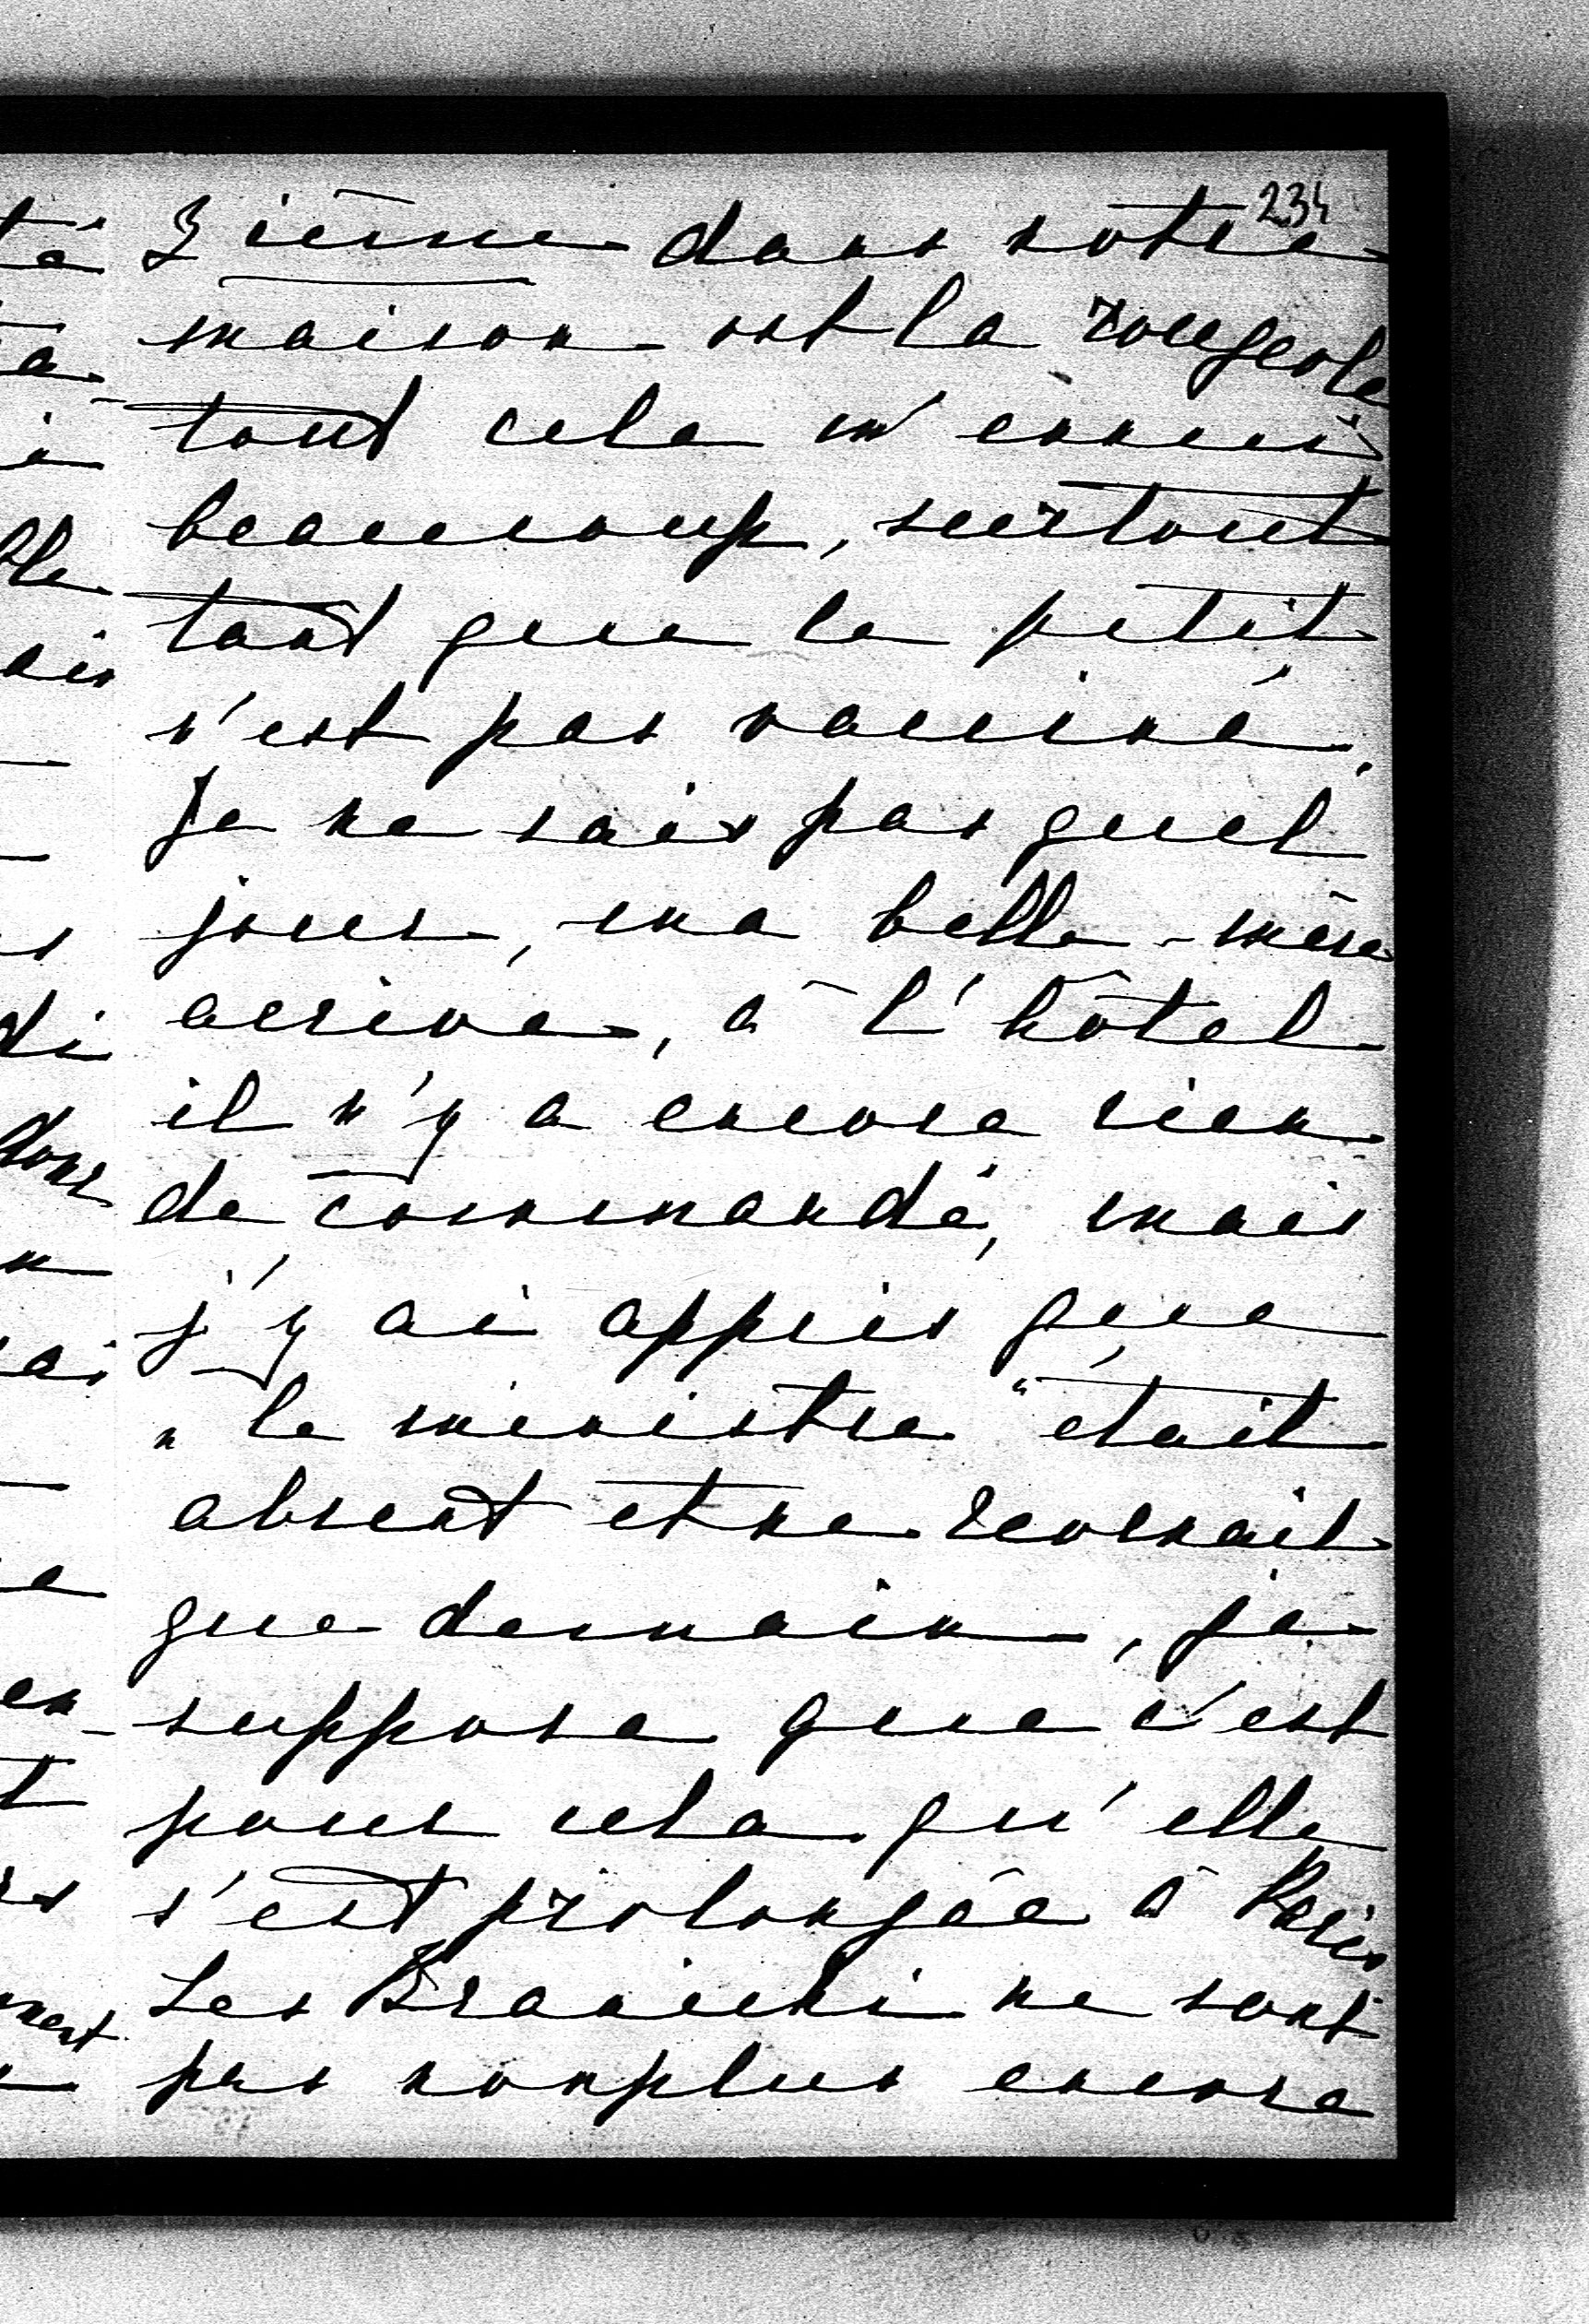 234
3 ième dans notre
maison est la rougeole
tout cela m'ennui
beaucoup, surtout
tant que le petit
n'est pas vacciné.
Je ne sais pas quel
jour, ma belle-mère
arrive, à l'hôtel
il n'y a encore rien
de commandé, mais
j'y ai appris que
"le ministre" était
absent et ne revenait
que demain, je
suppose que c'est
pour cela qu'elle
s'est prolongée à Paris
Les Branicki ne sont
pas nonplus encore